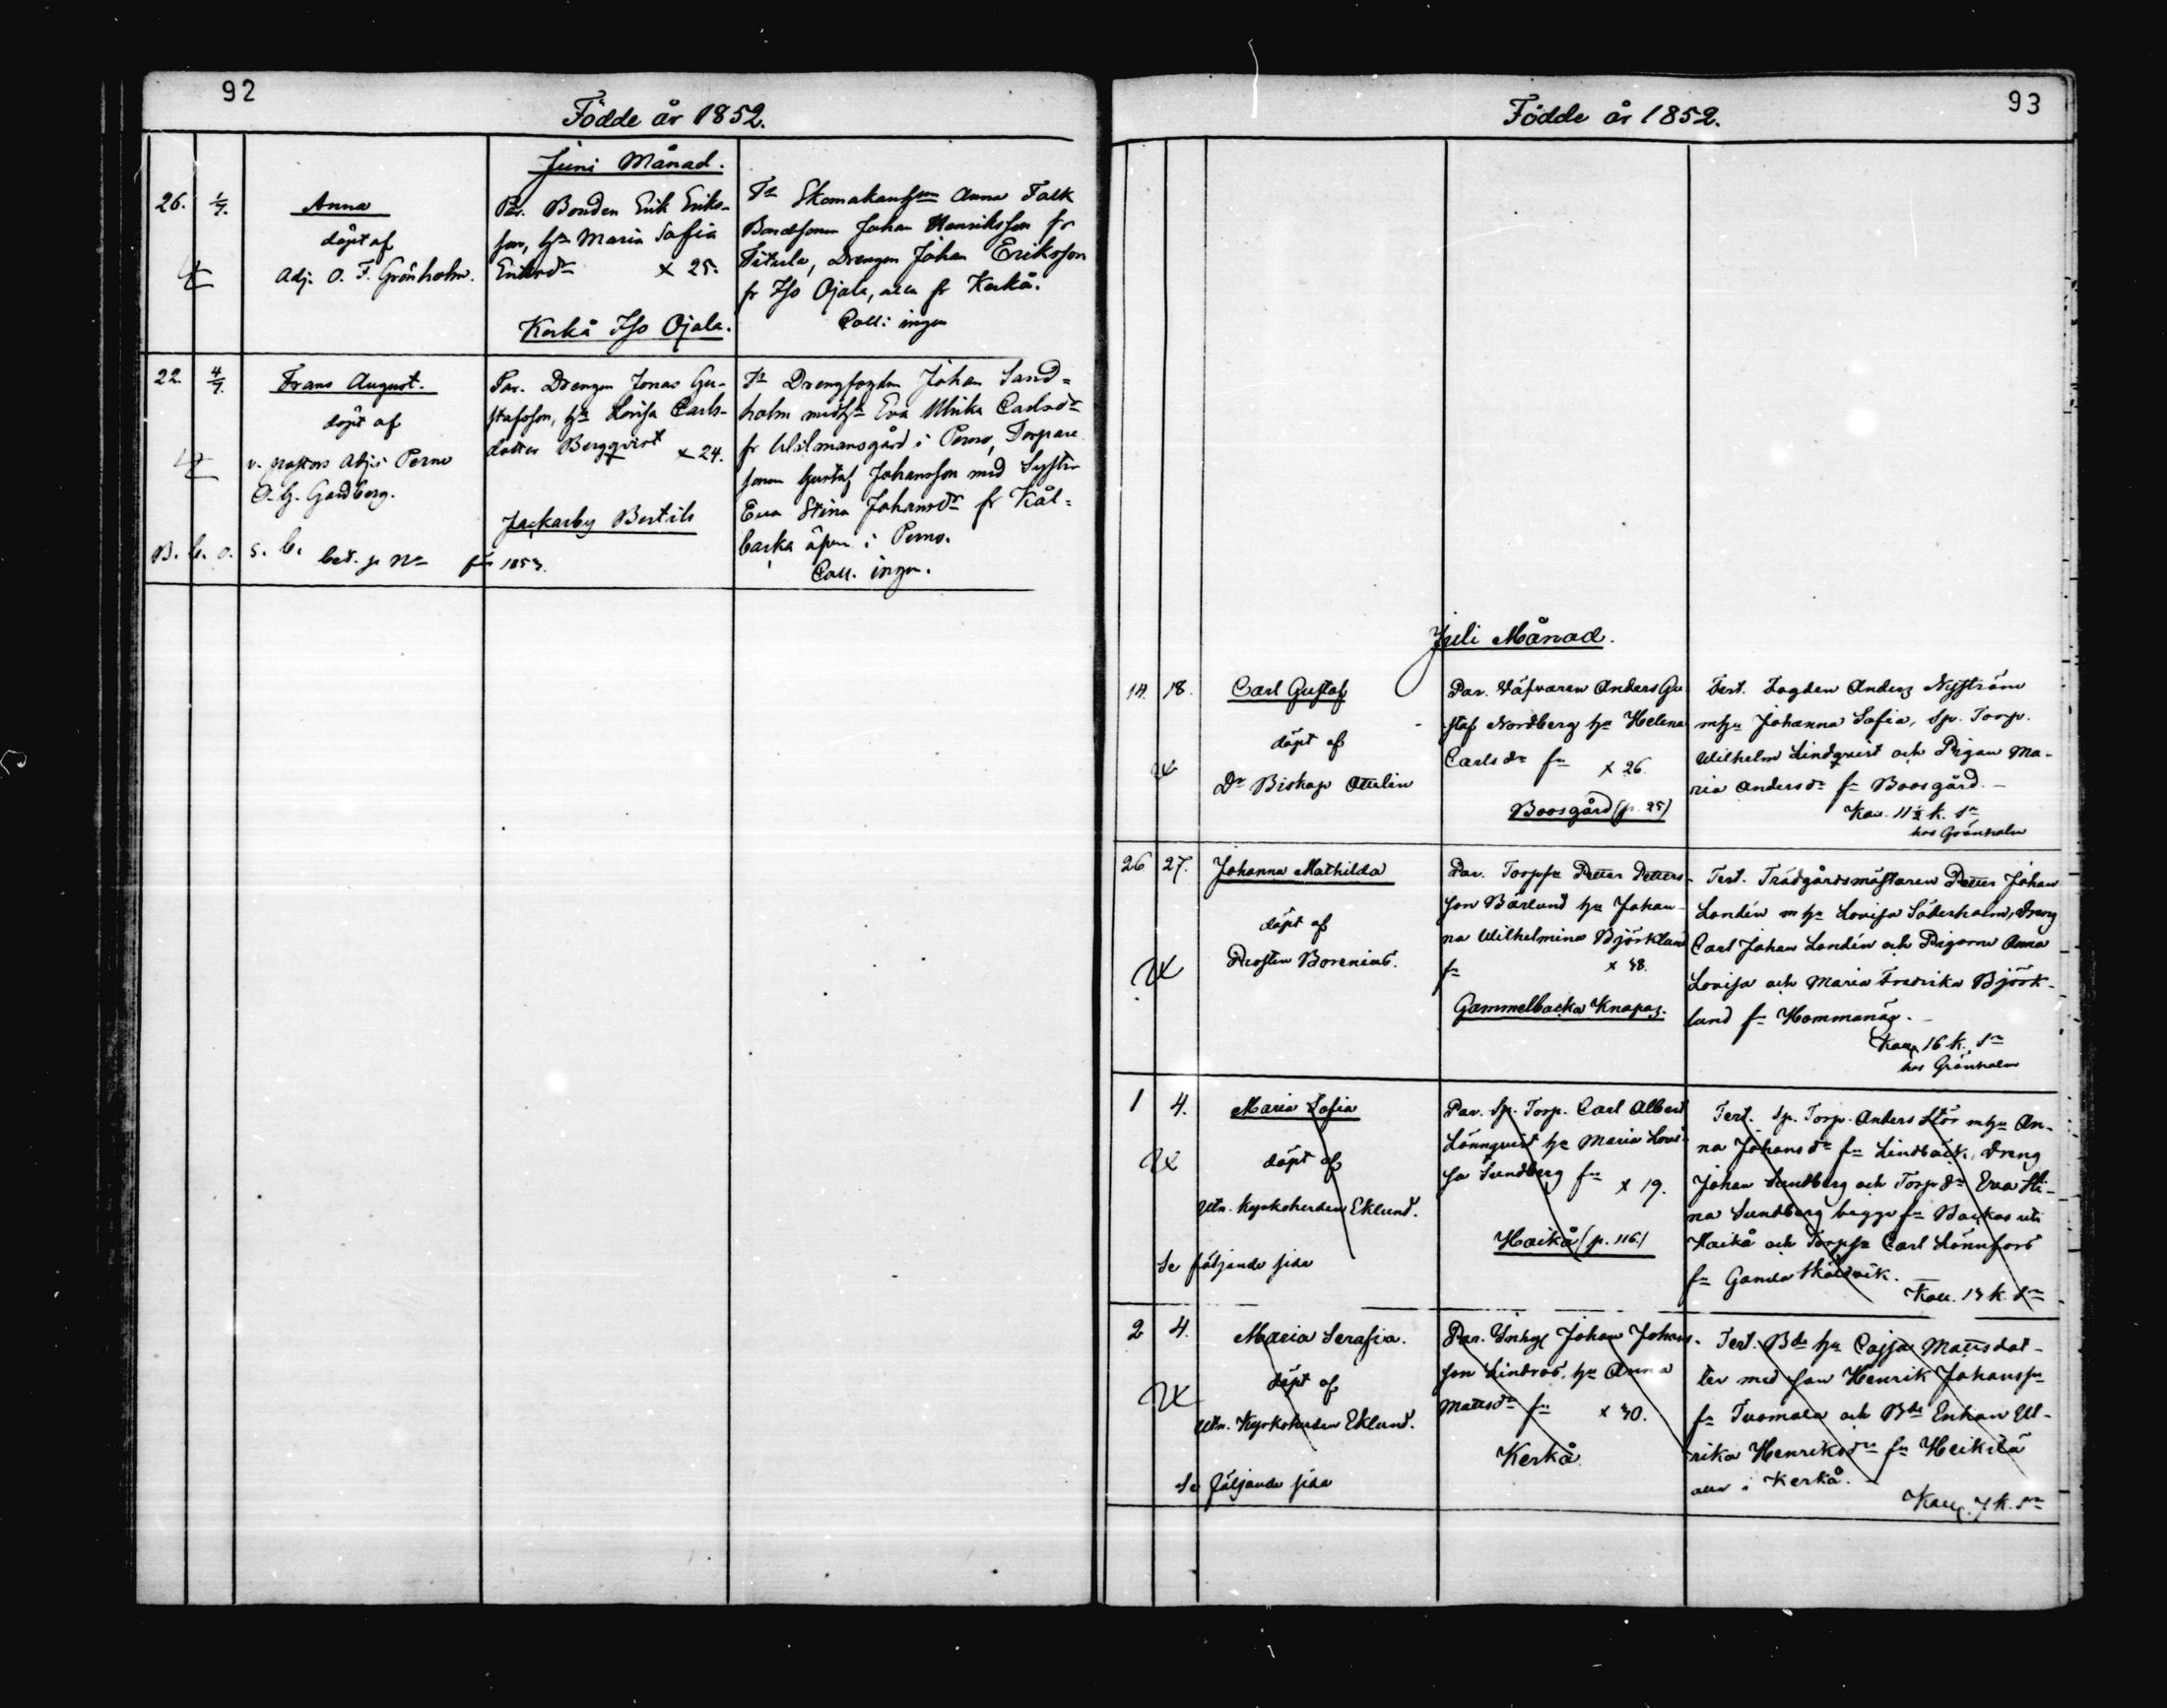 92
Födde år 1852.
Juni Månad.
26. 1/7. Anna
döpt af
Adj. O. F. Grönholm.
Par. Bonden Erik Eriks-
son, h:u Maria Sofia
Eriksd:r x 25.
Kerkå Iso Ojala.
Anna Falk
Bondsonen Johan Henriksson fr
Drengen Johan Eriksson
fr Iso Ojala, alla fr Kerkå.
Coll: ingen
22. 4/7. Frans August.
döpt af
v. pastors Adj. i Perno
Par. Drengen Jonas Gu-
stafsson, h:u Lovisa Carls-
dotter Bergqvist x 24.
Jackarby Bertils
T:r Drengfogden Johan Sand=
holm med h:u Eva Ulrika Carlsd:r
fr Ulrikasgård i Perno, Torpare
sonen Gustaf Johansson med Syster
Eva Stina Johansd:r fr Kål=
backa i Perno.
Coll. ingen.
1853.
93
Födde år 1852.
Juli Månad.
14. 18. Carl Gustaf
döpt af
D:r Biskop Ottelin
Par. Väfvaren Anders Gu
staf Nordberg h:u Helena
Carlsd:r f:n x 26.
Boosgård (p. 25)
Test. Fogden Anders Nyström
mh:u Johanna Sofia, Sp. Torp.
Wilhelm Lindqvist och Pigan Ma-
ria Andersd:r f:n Boosgård. -
Koll. 11 1/2 k. s:r
hos Grönholm
26 27. Johanna Mathilda
döpt af
Prosten Borenius.
Par. Torp:n Petter Petters-
son Bärlund h:u Johan-
na Wilhelmina Björklund
f:n x 38.
Gammelbacka Knapas.
Test. Trädgårdsmästaren Petter Johan
Londén m h:u Lovisa Söderholm, Dreng
Carl Johan Londén och Pigorna Anna
Lovisa och Maria Fredrika Björk-
lund f:n Hommanäs. -
Koll. 16 k. s:r
hos Grönholm
1 4. Maria Sofia
döpt af
Utn. Kyrkoherden Eklund.
Se följande sida
Par. Sp. Torp. Carl Albert
Lönnqvist h:u Maria Lovi-
sa Sundberg f:n x 19.
Haikå (p. 116)
Test. Sp. Torp. Anders Stör mh:u An-
na Johansd:r f:n Lindbäck, Dreng
Johan Sundberg och Torp.d:r Eva Sti-
na Sundberg begge f:n Backas uti
Haikå och Torp:n Carl Lönnfors
f:n Gamla Sköldvik.
Koll. 13 k. s:r
2 4. Maria Serafia.
döpt af
Utn. Kyrkoherden Eklund.
Se följande sida
Par. Inhys Johan Johans-
son Lindros, h:u Anna
Mattsd:r f:n x 30.
Kerkå
Test. Bd:e h:u Cajsa Mattsdot-
ter med son Henrik Johanss:n
f:n Tuomala och Bd:e Enkan Ul-
rika Henriksd:r f:n Heikilä
alla i Kerkå. -
Koll. 7 k. s:r